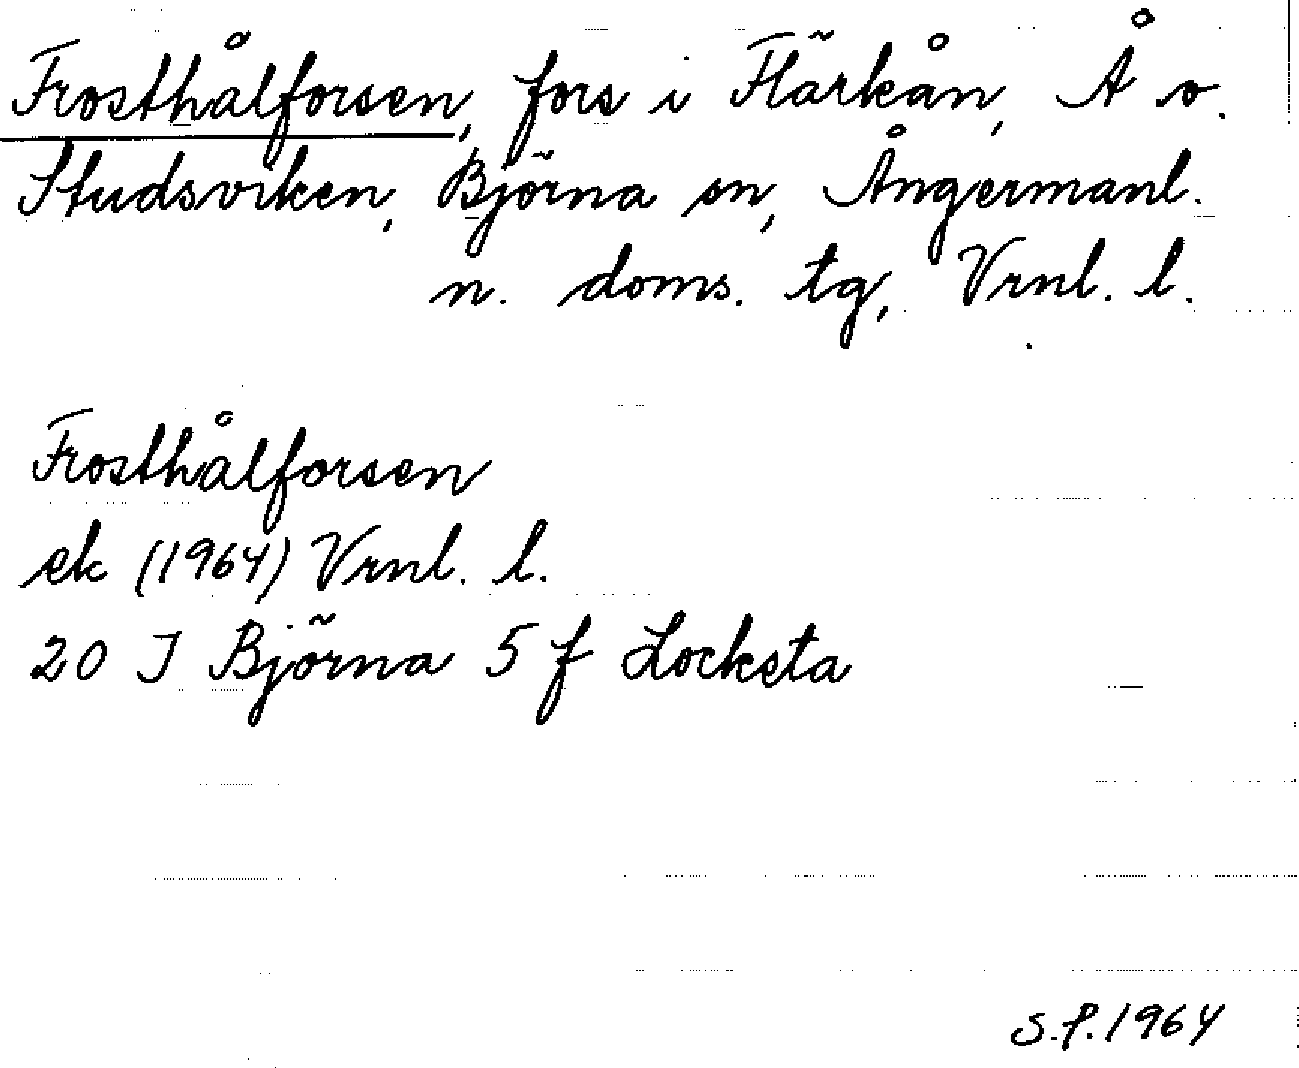 Frosthålforsen, fors i Flärkån, Å o.
Studsviken, Björna sn, Ångermanl.
n. doms. tg, Vrnl. l.
Frosthålforsen
ek (1964) Vrnl. l.
20 I Björna 5 f Locksta
S.P. 1964